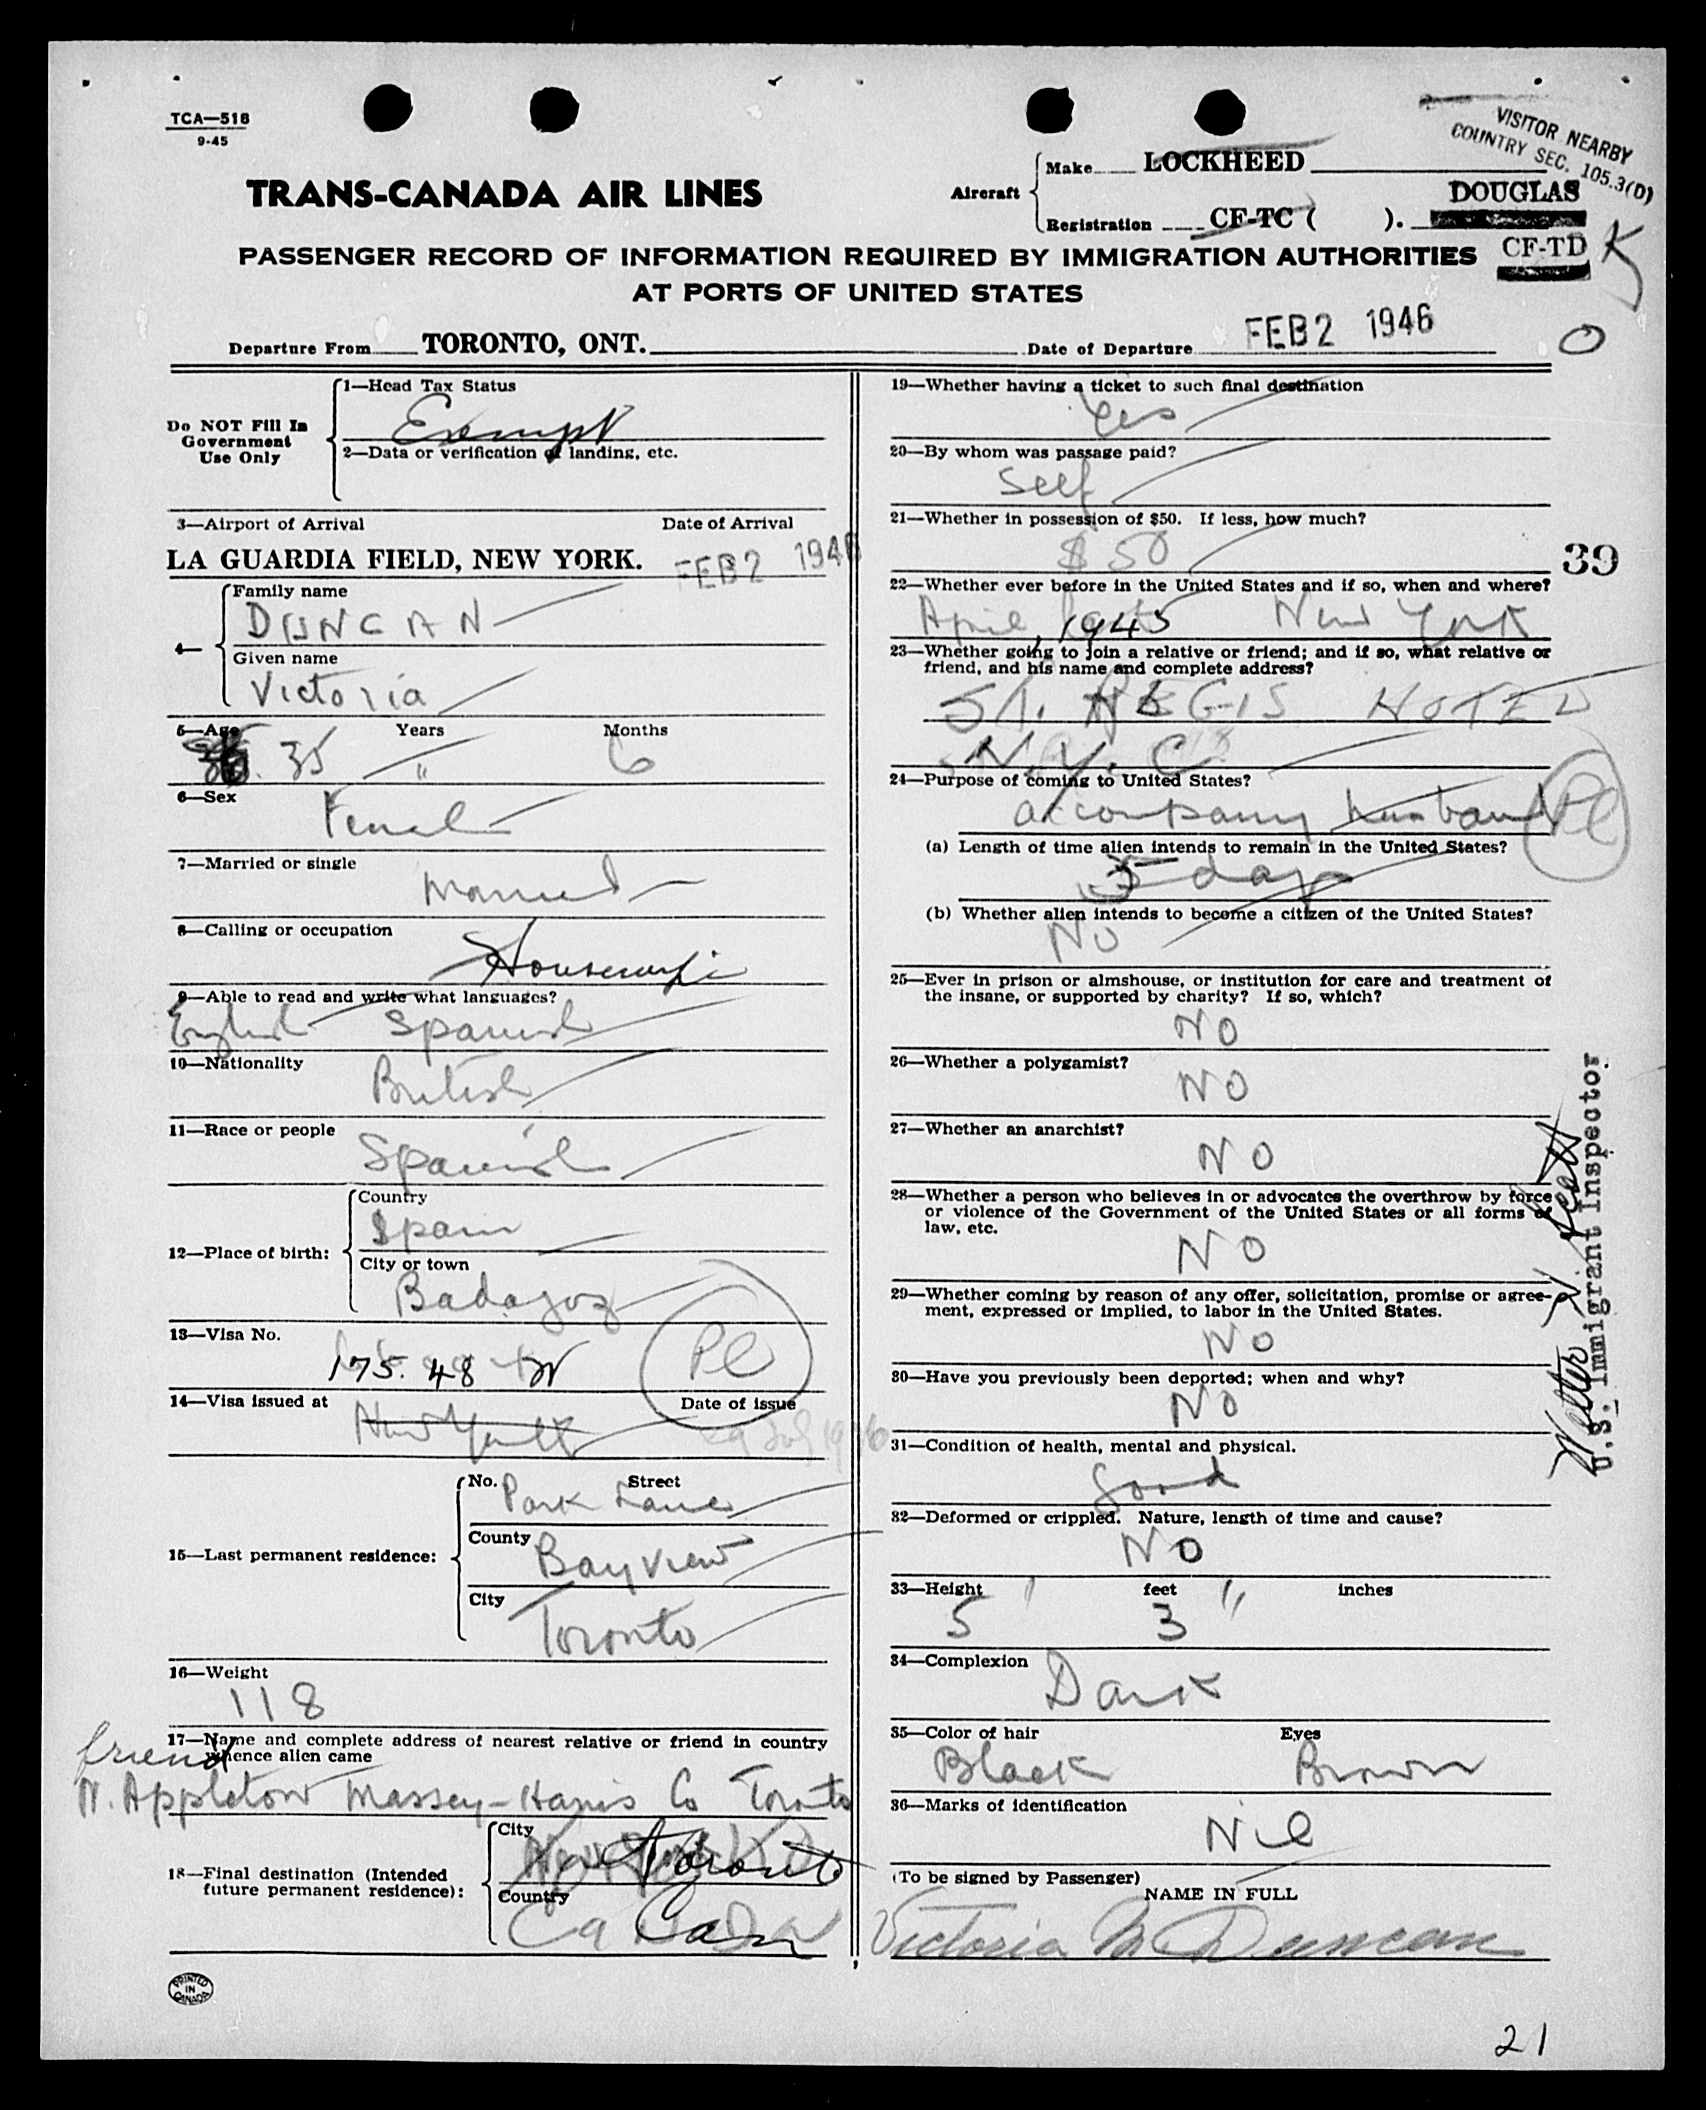 TCA—518
9-45
VISITOR NEARBY
COUNTRY SEC. 105.3(D)
TRANS-CANADA AIR LINES
Aircraft
Make LOCKHEED
DOUGLAS
Registration CF-TC ( ).
CF-TD K
PASSENGER RECORD OF INFORMATION REQUIRED BY IMMIGRATION AUTHORITIES
AT PORTS OF UNITED STATES
Departure From TORONTO, ONT. Date of Departure FEB 2 1946
O
Do NOT Fill In
Government
Use Only
1—Head Tax Status
Exempt
2—Data or verification of landing, etc.
3—Airport of Arrival Date of Arrival
LA GUARDIA FIELD, NEW YORK. FEB 2 1946
4—
Family name
DUNCAN
Given name
Victoria
5—Age Years Months
35 " 6
6—Sex
Female
7—Married or single
Married
8—Calling or occupation
Housewife
9—Able to read and write what languages?
English Spanish
10—Nationality
British
11—Race or people
Spanish
12—Place of birth:
Country
Spain
City or town
Badagoz
13—Visa No.
175.48
PL
14—Visa issued at Date of issue
New York
15—Last permanent residence:
No. Street
Park Lane
County
Bayview
City
Toronto
16—Weight
118
17—Name and complete address of nearest relative or friend in country
whence alien came
friend
N. Appleton Massey-Harris Co Toronto
18—Final destination (Intended
future permanent residence):
City
Toronto
Country
Canada
PRINTED
IN
CANADA
19—Whether having a ticket to such final destination
Yes
20—By whom was passage paid?
Self
21—Whether in possession of $50. If less, how much?
$50
39
22—Whether ever before in the United States and if so, when and where?
April, 1945 New York
23—Whether going to join a relative or friend; and if so, what relative or
friend, and his name and complete address?
St. REGIS HOTEL
N.Y.C.
24—Purpose of coming to United States?
accompany husband
PL
(a) Length of time alien intends to remain in the United States?
5 days
(b) Whether alien intends to become a citizen of the United States?
No
25—Ever in prison or almshouse, or institution for care and treatment of
the insane, or supported by charity? If so, which?
NO
26—Whether a polygamist?
NO
27—Whether an anarchist?
NO
28—Whether a person who believes in or advocates the overthrow by force
or violence of the Government of the United States or all forms of
law, etc.
NO
29—Whether coming by reason of any offer, solicitation, promise or agree-
ment, expressed or implied, to labor in the United States.
No
30—Have you previously been deported; when and why?
NO
31—Condition of health, mental and physical.
Good
32—Deformed or crippled. Nature, length of time and cause?
NO
33—Height feet inches
5 ' 3 "
34—Complexion
Dark
35—Color of hair Eyes
Black Brown
36—Marks of identification
Nil
(To be signed by Passenger)
NAME IN FULL
Victoria M Duncan
U.S. Immigrant Inspector
21